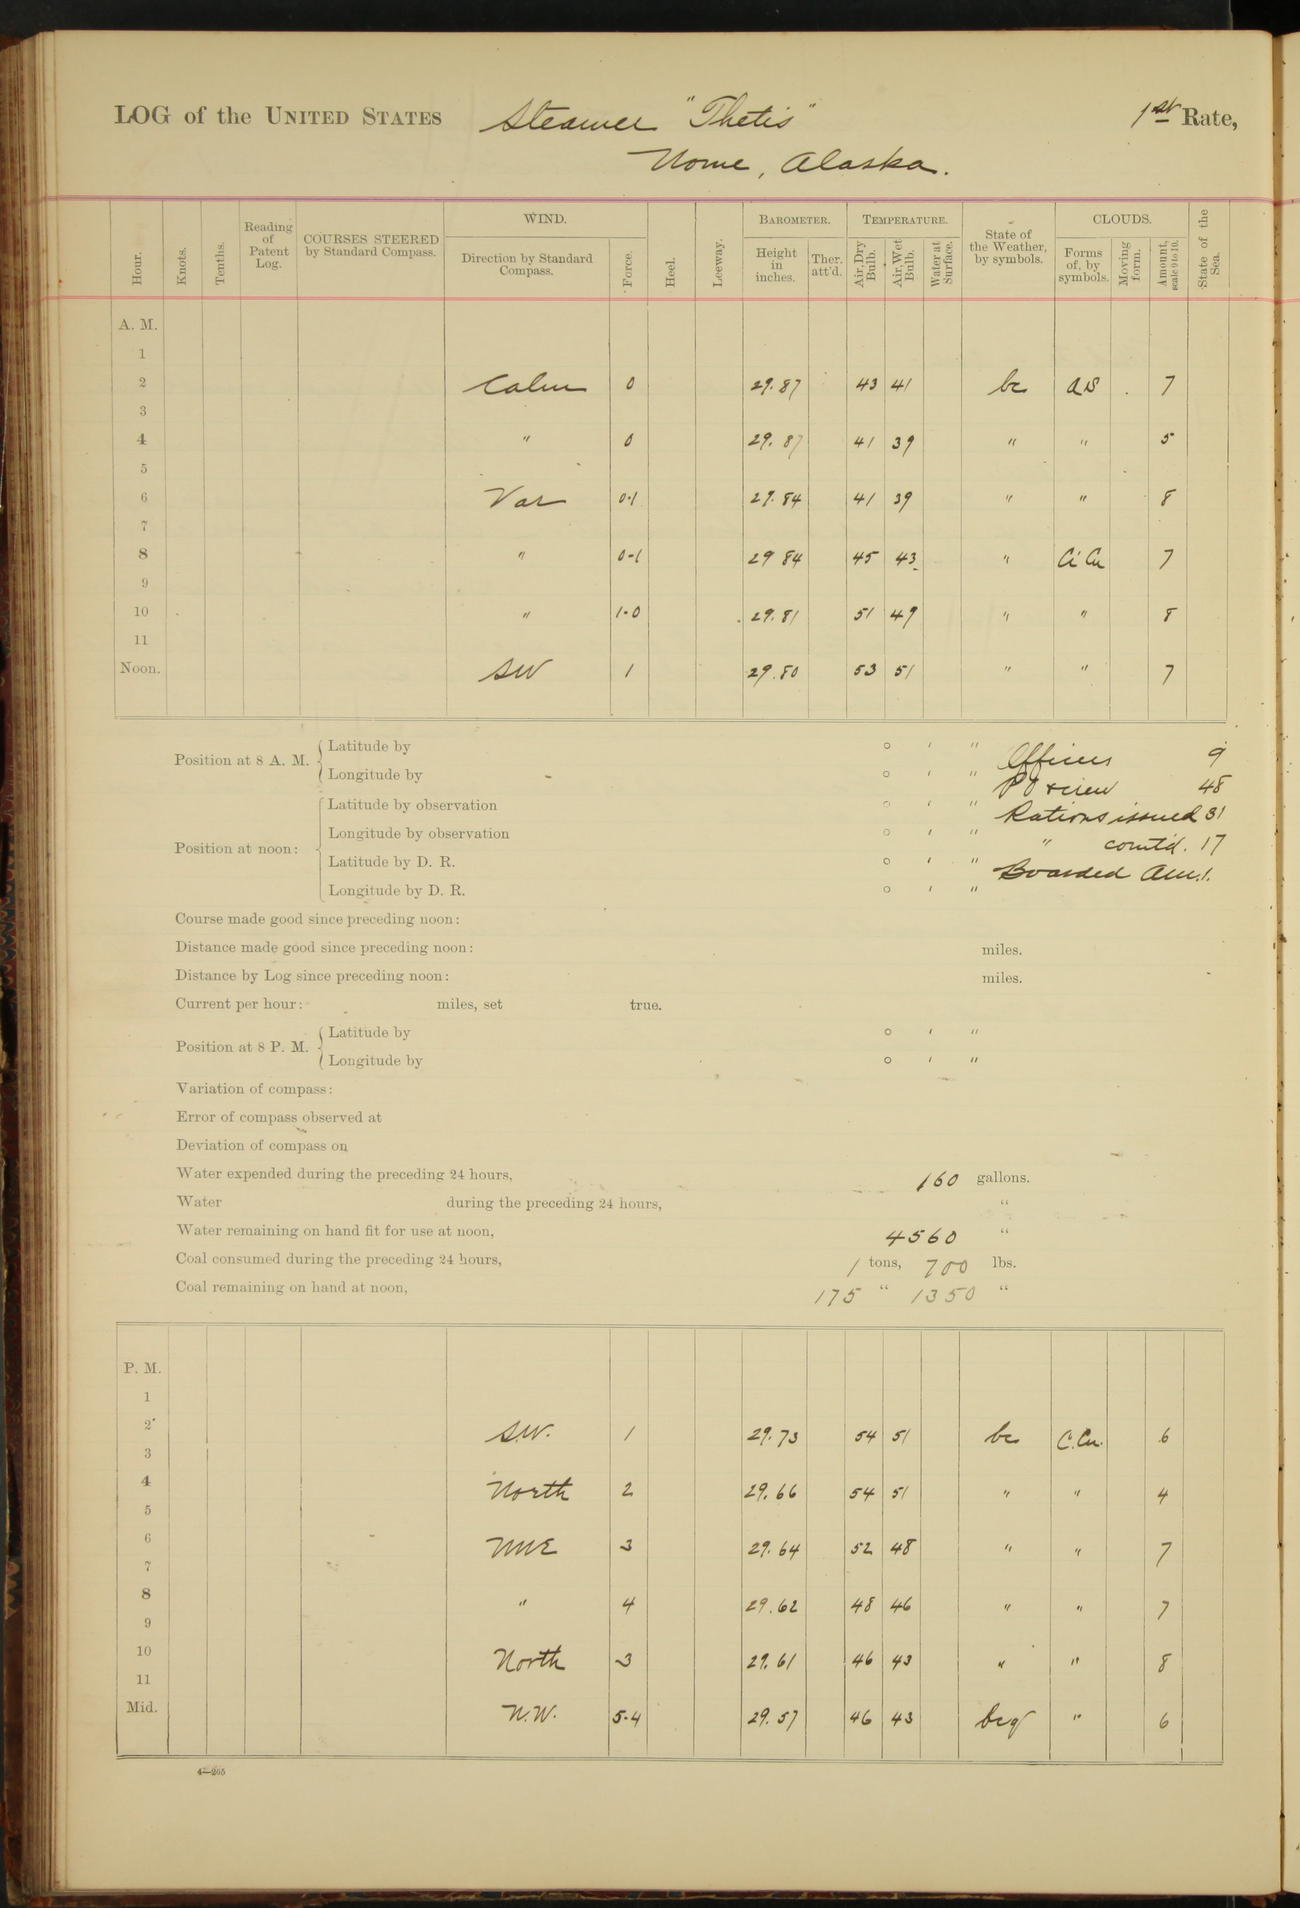 LOG of the UNITED STATES Steamer "Thetis" 1st Rate,
Nome, Alaska.
Hour. Knots. Tenths. Reading of Patent Log. COURSES STEERED by Standard Compass. WIND. Direction by Standard Compass. Force. Heel. Leeway. BAROMETER. Height in inches. Ther. att'd. TEMPERATURE. Air, Dry Bulb. Air, Wet Bulb. Water at Surface. State of the Weather, by symbols. CLOUDS. Forms of, by symbols. Moving form. Amount, scale 0 to 10. State of the Sea.
A. M.
1
2 Calm 0 29.87 43 41 bc AS 7
3
4 " 0 29.87 41 39 " " 5
5
6 Var 0-1 29.84 41 39 " " 8
7
8 " 0-1 29 84 45 43 " Ci Cu 7
9
10 " 1-0 29.81 51 49 " " 8
11
Noon. SW 1 29.80 53 51 " " 7
Position at 8 A. M. Latitude by ° ' " Officers 9
Longitude by ° ' " PO & crew 48
Position at noon: Latitude by observation ° ' " Rations issued 31
Longitude by observation ° ' " " comt'd. 17
Latitude by D. R. ° ' " Boarded Am. 1.
Longitude by D. R. ° ' "
Course made good since preceding noon:
Distance made good since preceding noon: miles.
Distance by Log since preceding noon: miles.
Current per hour: miles, set true.
Position at 8 P. M. Latitude by ° ' "
Longitude by ° ' "
Variation of compass:
Error of compass observed at
Deviation of compass on
Water expended during the preceding 24 hours, 160 gallons.
Water during the preceding 24 hours, "
Water remaining on hand fit for use at noon, 4560 "
Coal consumed during the preceding 24 hours, 1 tons, 700 lbs.
Coal remaining on hand at noon, 175 " 1350 "
P. M.
1
2 S.W. 1 29.73 54 51 bc C.Cu. 6
3
4 North 2 29.66 54 51 " " 4
5
6 NNE 3 29.64 52 48 " " 7
7
8 " 4 29.62 48 46 " " 7
9
10 North 3 29.61 46 43 " " 8
11
Mid. N.W. 5-4 29.57 46 43 bcq " 6
4—265